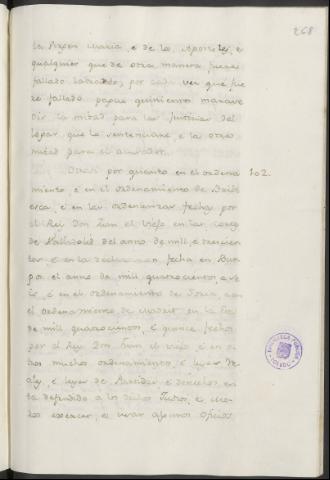 268
la Virgen Maria, e de los Apostoles, e
qualquier que de otra manera fuere
fallado labrando, por cada vez que fue
re fallado pague quinientos marave
dis la mitad para las Justicias del
logar que lo sentenciare, e la otra
mitad para el acusador.
Otrosi por quanto en el ordena 102.
miento, e en el ordenamiento de
e en las ordenanzas fechas por
el Rey Don Juan el Viejo en las cortes
de Valladolid del anno de mill, e
e en la fecha en Bur
gos el anno de mill quatrocientos, e
e en el ordenamiento de Soria, con
el ordenamiento de
de mill quatrocientos, e quince fechos
por el Rey Don Juan el viejo, e en o
tros muchos ordenamientos, e leyes de
e leyes de Partidas, e derechos, es
ta defendido a los dichos Judios, e Mo
ros exercer, e usar algunos oficios
BIBLIOTECA PUBLICA
TOLEDO